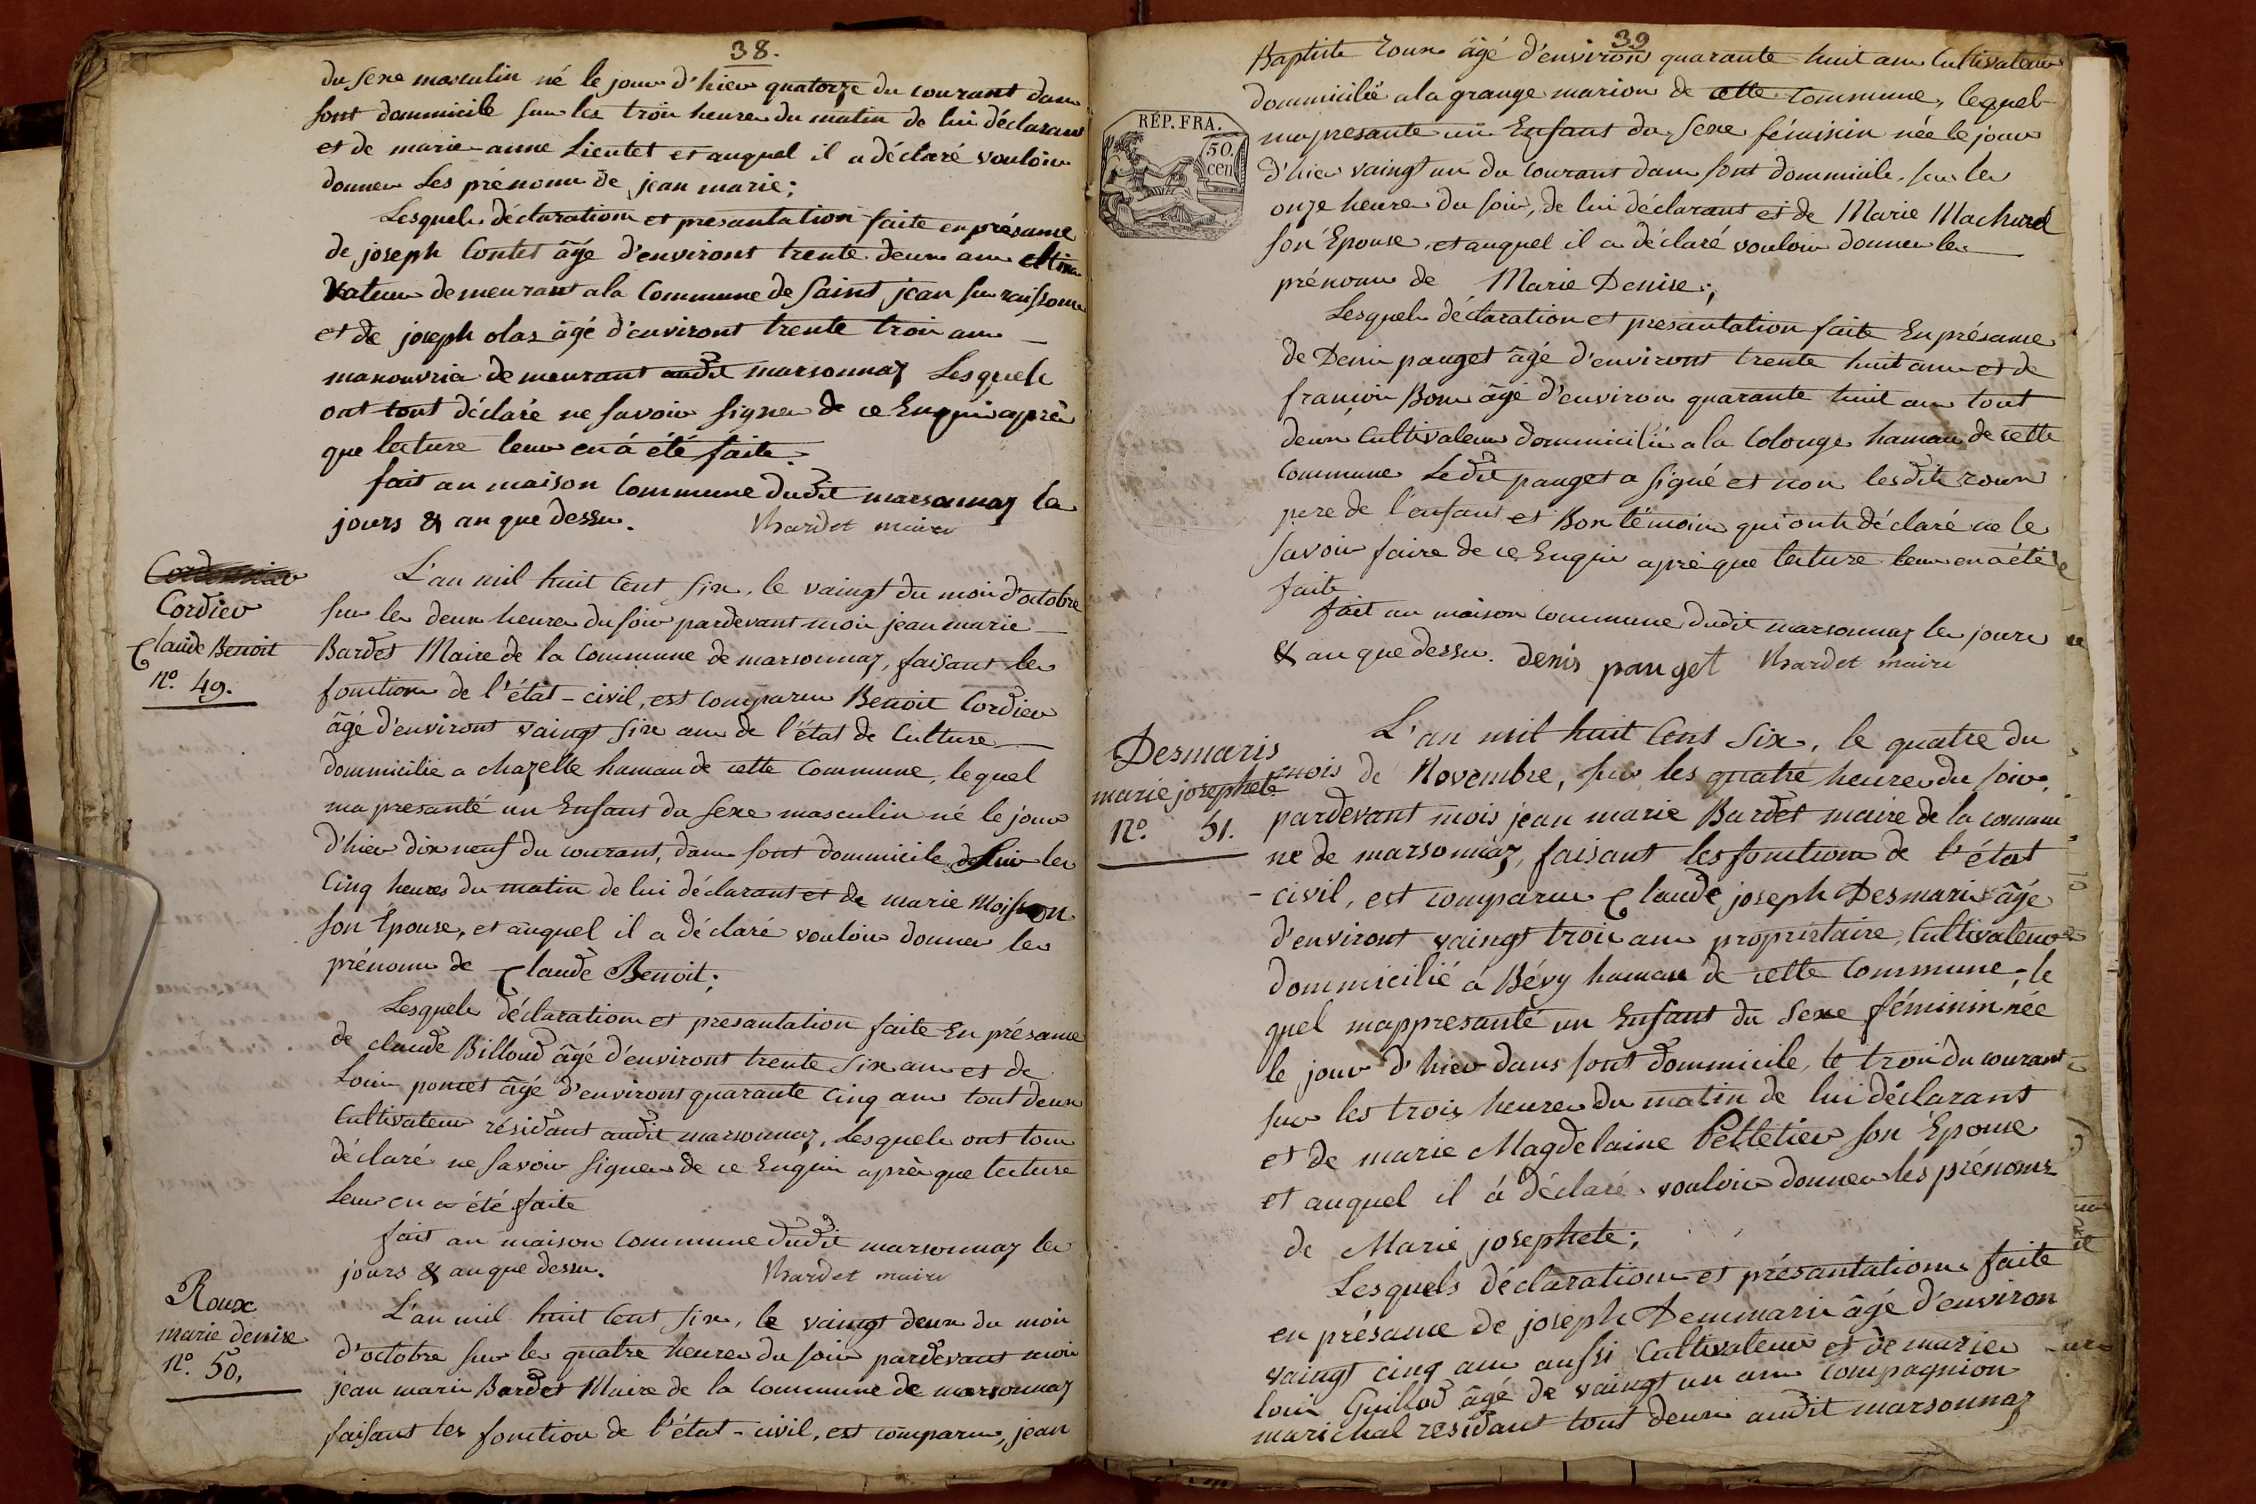 38.
du sexe masculin né le jour d'hier quatorze du courant dans
sont dommicile sur les trois heures du matin de lui déclarant
et de marie-anne Lientet et auquel il a déclaré vouloir
donner Les prénoms de jean marie;
Lesquels déclaration et presantation faite en présance
de joseph Contet âgé d'environt trente deux ans culti
vateur demeurant a la Commune de Saint jean sur raissouse
et de joseph olas âgé d'environt trente trois ans
manouvrié demeurant audit marsonnaz Lesquels
ont tout déclaré ne savoir signer de ce Enquis après
que lecture leur en á été faite.
fait en maison Commune dudit marsonnaz les
jours & an que dessus. JMBardet maire
Cordier
Claude Benoit
n°. 49.
L'an mil huit Cent six, le vaingt du mois d'octobre
sur les deux heures du soir pardevant moi jean marie
Bardet Maire de la Commune de marsonnaz, faisant les
fonctions de l'état-civil, est comparu Benoit Cordier
âgé d'environt vaingt six ans de l'état de Culture
dommicilie a chazelle hamau de cette Commune, lequel
ma presanté un Enfant du sexe masculin né le jour
d'hier dix neuf du courant, dans sont dommicile, sur les
Cinq heures du matin de lui déclarant et de marie Moisson
son Epouse, et auquel il a déclaré vouloir donner les
prénoms de Claude Benoit;
Lesquels déclaration et presantation faite En présance
de claude Billoud âgé d'environt trente six ans et de
Louis poncet âgé d'environt quarante Cinq ans tout deux
Cultivateur résidant audit marsonnaz, Lesquels ont tous
déclaré ne savoir signer de ce Enquis après que lecture
Leur en a été faite
fait an maison Commune dudit marsonnaz les
jours & an que dessus. JMBardet maire
Roux
marie denise
n°. 50,
L'an mil huit Cent six, le vaingt deux du mois
d'octobre sur les quatre heures du soir pardevant moi
jean marie Bardet Maire de la Commune de marsonnaz
faisant les fonction de l'état-civil, est comparu, jean
39
Baptiste roux âgé d'environ quarante huit ans Cultivateur
dommicilié a la grange marion de cette Commune, lequel
ma presante un Enfant du sexe féminin née le jour
d'hier vaingt un du Courant dans sont dommicile, sur les
onze heures du soir, de lui déclarant et de Marie Machurd
son Epouse, et auquel il a déclaré vouloir donner les
prénoms de Marie Denise;
RÉP. FRA.
50
cen
Lesquels déclaration et presantation faite En présance
de Denis pauget âgé d'environt trente huit ans et de
françois Bon âgé d'environ quarante huit ans tout
deux Cultivateur dommicilié a la Colonge hamau de cette
Commune Ledit pauget a signé et non lesdits roux
pere de l'enfant et Bon témoin qui ont déclaré ne le
savoir faire de ce Enquis après que lecture leur en a été
faite
fait an maison commune dudit marsonnaz les jours
& an que dessus. denis pauget JMBardet maire
Desmaris
marie josephete
n°. 51.
L'an mil huit Cent six, le quatre du
mois de Novembre, sur les quatre heures du soir,
pardevant mois jean marie Bardet maire de la commu
ne de marsonnaz, faisant les fonction de l'état
-civil, est comparu Claude joseph Desmaris âgé
d'environt vaingt trois ans proprietaire, Cultivateur
dommicilié á Bévy hamau de cette Commune, le
quel mappresanté un Enfant du sexe féminin née
le jour d'hier dans sont dommicile, le trois du courant
sur les trois heures du matin de lui déclarant
et de marie Magdelaine Pelletier son Epouse
et auquel il á déclaré vouloir donner les prénoms
de Marie josephete;
Lesquels déclaration et présantation faite
en présance de joseph Demmaris âgé d'environ
vaingt cinq ans aussi Cultivateur et de marie
louis Guillod âgé de vaingt un ans compagnion
marichal residant tout deux audit marsonnaz